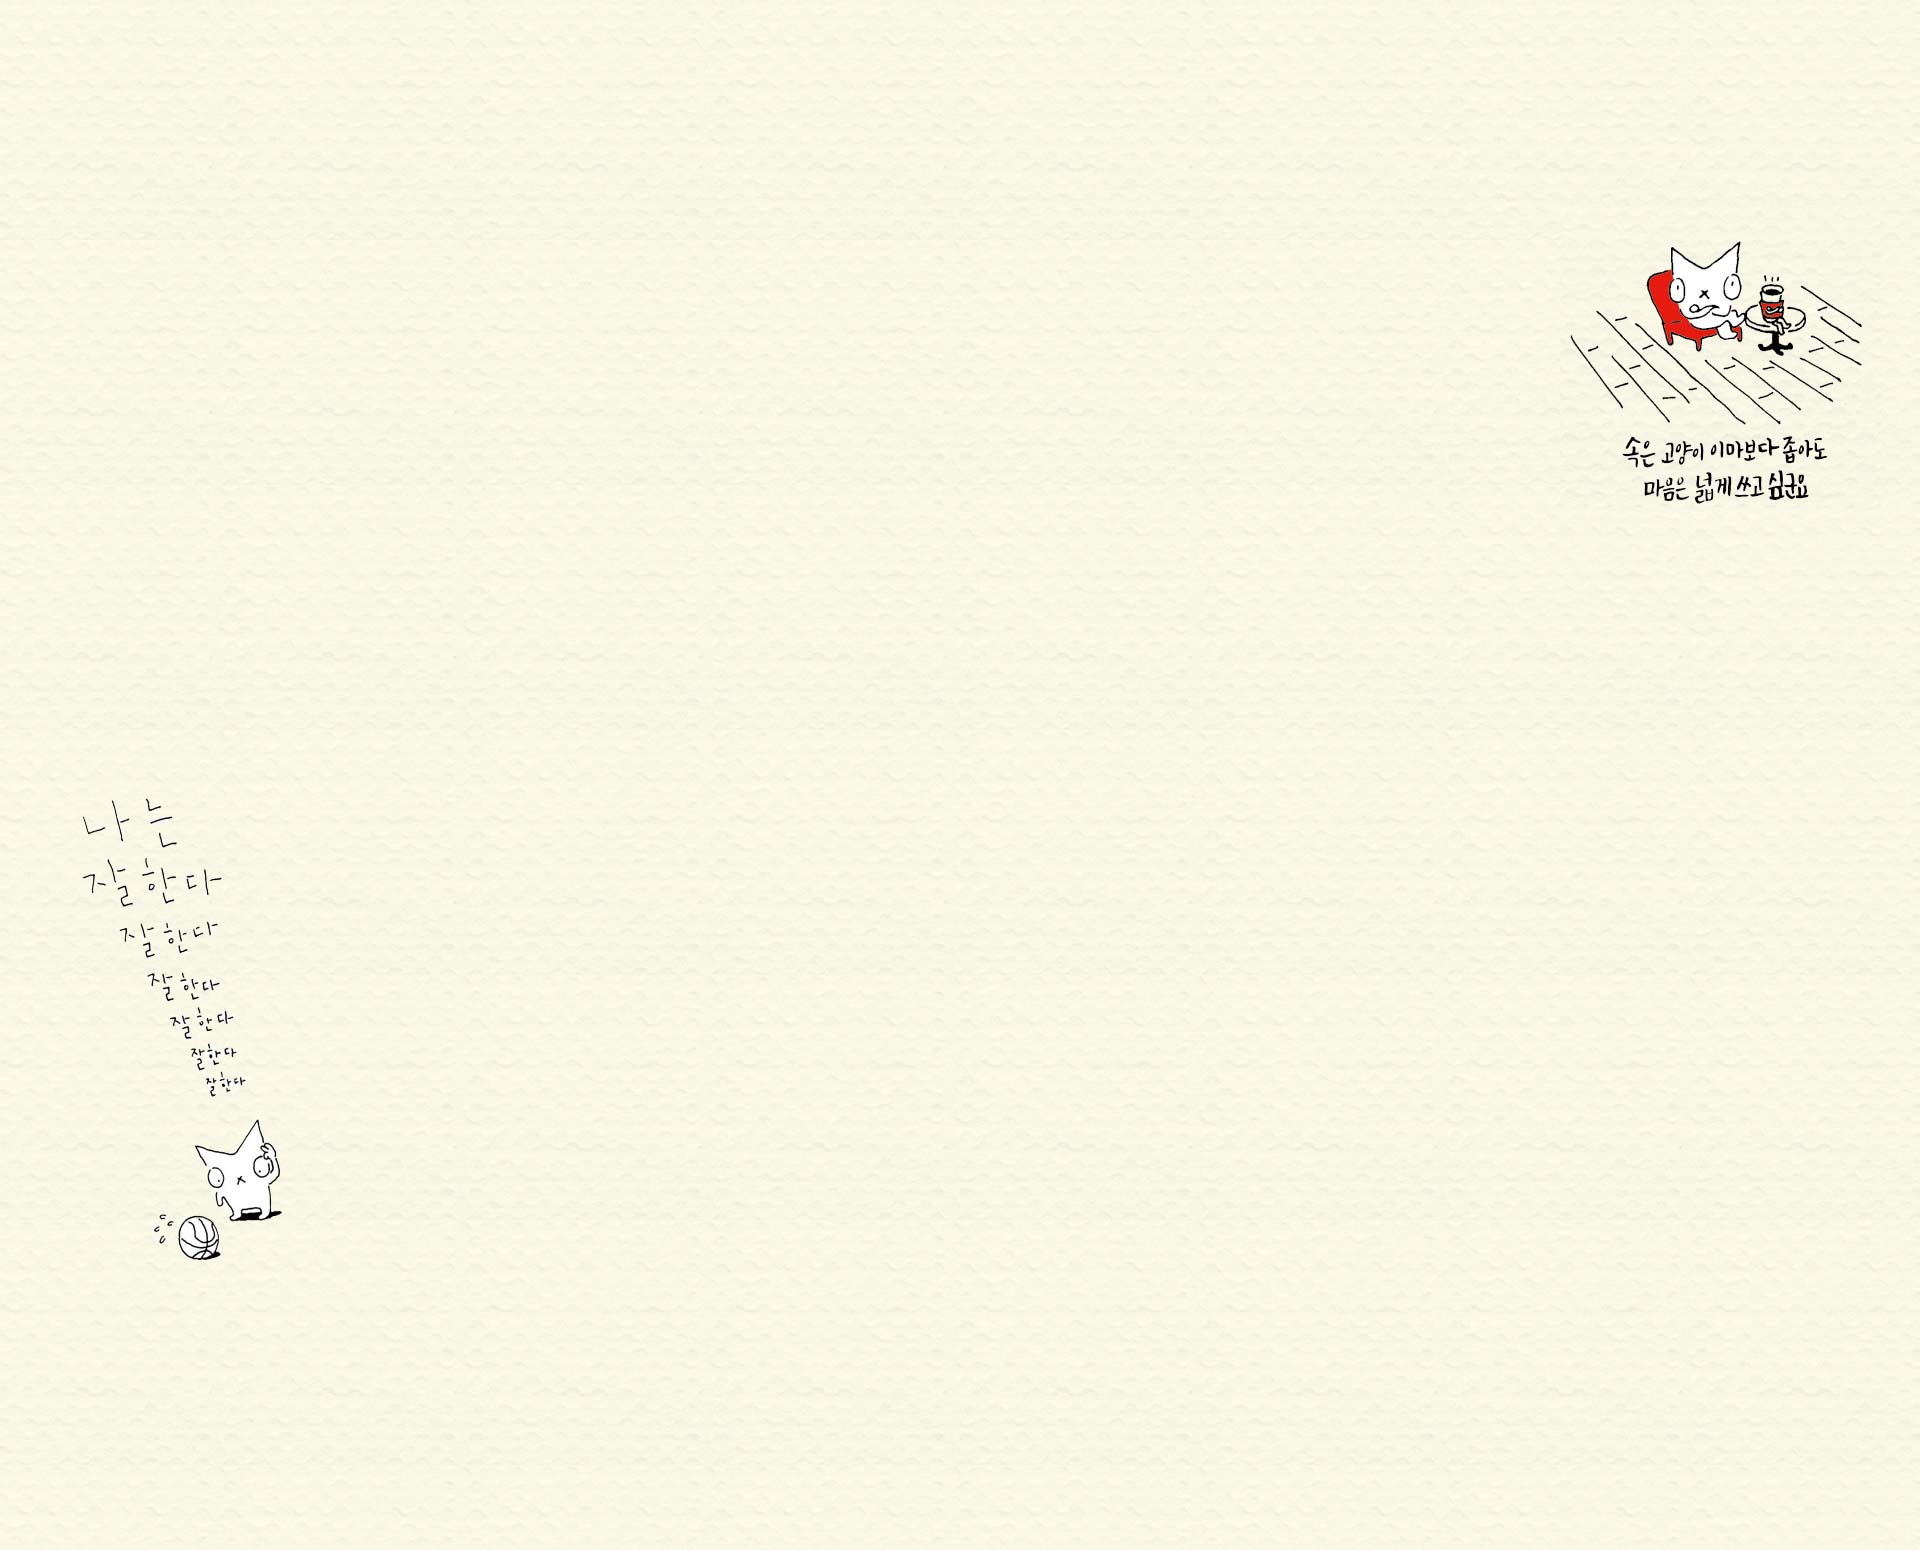 속은 고양이 이마보다 좁아도
마음은 넓게 쓰고 싶군요
나는
잘한다
잘한다
잘한다
잘한다
잘한다
잘한다